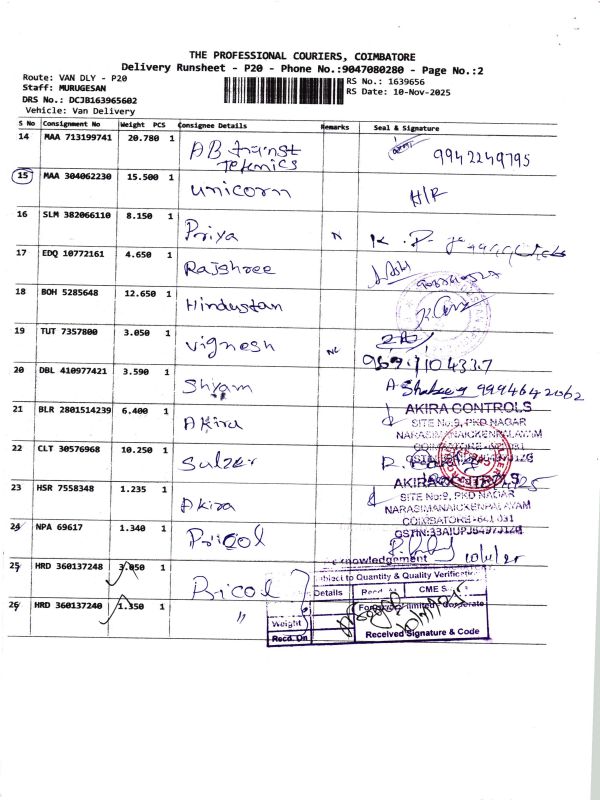 THE PROFESSIONAL COURIERS, COIMBATORE
Delivery Runsheet - P20 - Phone No.:9047080280 - Page No.:2
Route: VAN DLY - P20
Staff: MURUGESAN
DRS No.: DCJB163965602
Vehicle: Van Delivery
RS No.: 1639656
RS Date: 10-Nov-2025
S No Consignment No Weight PCS Consignee Details Remarks Seal & Signature
14 MAA 713199741 20.780 1 AB transt 9942249795
15 MAA 304062230 15.500 1 unicorn H/R
16 SLM 382066110 8.150 1 Priya N
17 EDQ 10772161 4.650 1 Rajshree
18 BOH 5285648 12.650 1 Hindustan
19 TUT 7357800 3.050 1 Vignesh NC
20 DBL 410977421 3.590 1 Shyam 9994642062
21 BLR 2801514239 6.400 1 Akira
AKIRA CONTROLS
SITE No:9, PKD NAGAR
NARASIMANAICKENPALAYAM
22 CLT 30576968 10.250 1 Sulzer
23 HSR 7558348 1.235 1 Akira
AKIRA CONTROLS
SITE No:9, PKD NAGAR
NARASIMANAICKENPALAYAM
COIMBATORE-641 031
24 NPA 69617 1.340 1 Pricol 10/11/25
25 HRD 360137248 3.050 1 Pricol
26 HRD 360137240 1.350 1 "
Subject to Quantity & Quality Verification
Details
CME S
Weight
Recd. On
Received Signature & Code